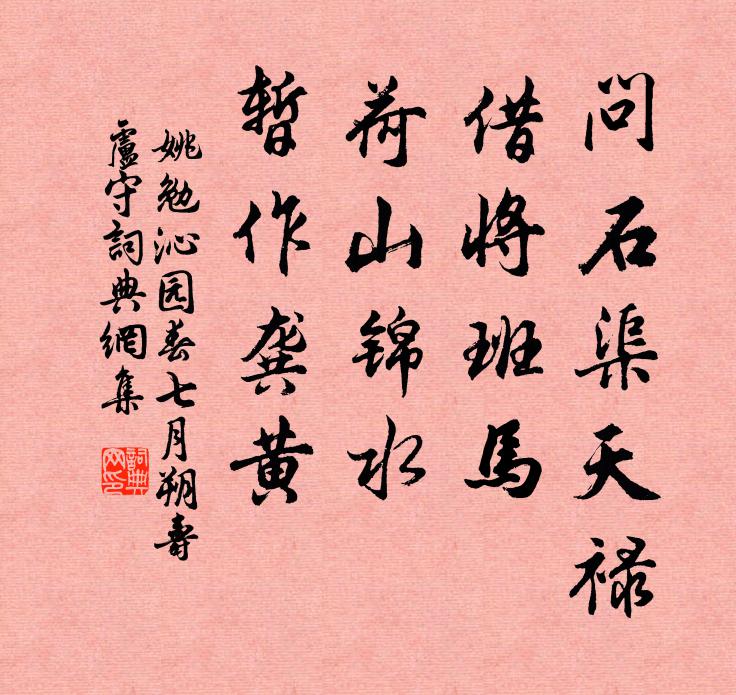 问石渠天禄
借将班馬
荷山锦水
暂作龚黄
姚勉沁园春七月朔壽
盧守詞典網集
詞典
网印